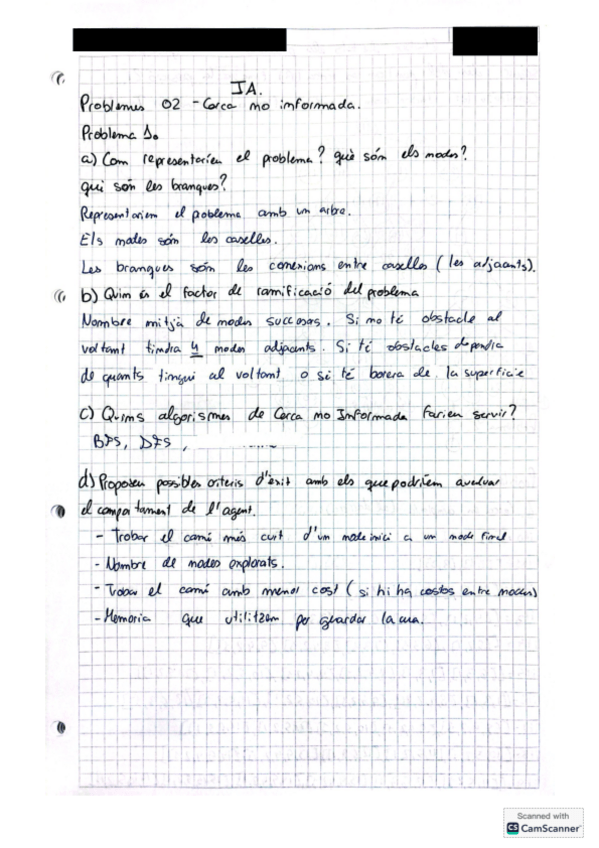 IA.
Problemes 02 - Cerca no informada.
Problema 1.
a) Com representarieu el problema? què són els nodes?
qui són les branques?
Representariem el pobleme amb un arbre.
Els nodes són les caselles.
Les branques són les conexions entre caselles (les adjacents).
b) Quin és el factor de ramificació del problema
Nombre mitjà de nodes succesors. Si no té obstacle al
voltant tindra 4 nodes adjacents. Si té obstacles dependra
de quants tingui al voltant o si té borera de la superficie
c) Quins algorismes de Cerca no Informada farien servir?
BFS, DFS,
d) Proposeu possibles criteris d'èxit amb els que podriem avaluar
el comportament de l'agent.
- Trobar el camí més curt d'un node inici a un node final
- Nombre de nodes explorats.
- Trobar el camí amb menor cost (si hi ha costos entre nodes)
- Memoria que utilitzem per guardar la cua.
Scanned with
CS CamScanner